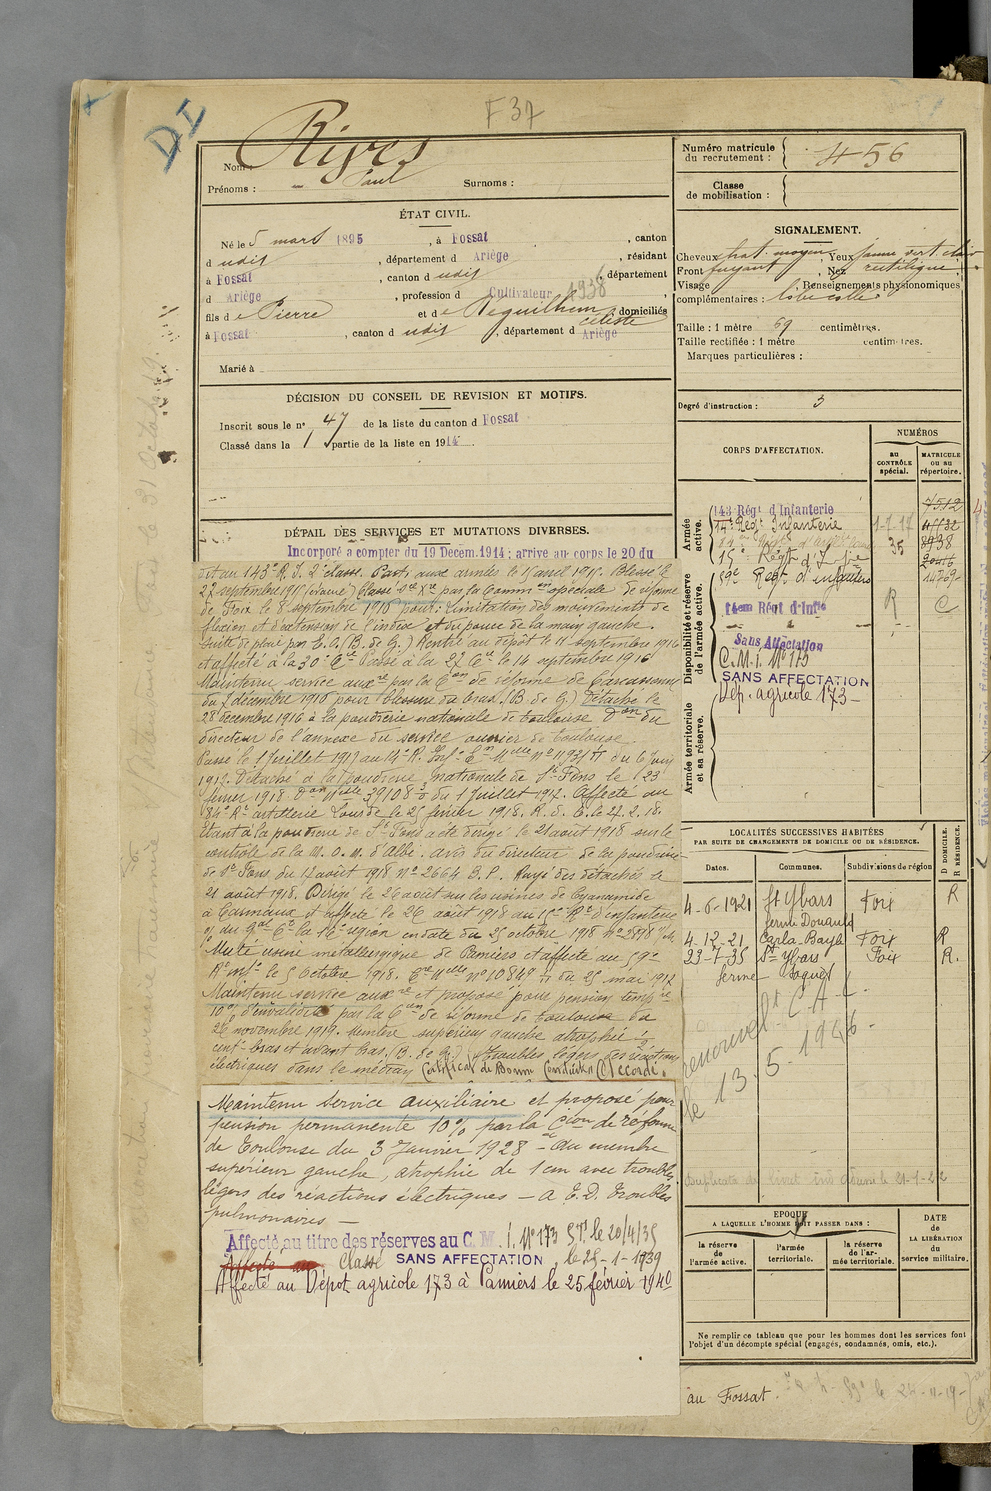 DI
F 37
Nom : Rives
Prénoms : Paul Surnoms :
ÉTAT CIVIL.
Né le 5 mars 1895, à Fossat, canton
d udit, département d Ariège, résidant
à Fossat, canton d udit, département
d Ariège, profession d Cultivateur 1938,
fils d e Pierre et d e Reguilhem domiciliés
céleste
à Fossat, canton d udit, département d Ariège
Marié à
DÉCISION DU CONSEIL DE REVISION ET MOTIFS.
Inscrit sous le n° 47 de la liste du canton d Fossat
Classé dans la 1 partie de la liste en 1914.
DÉTAIL DES SERVICES ET MUTATIONS DIVERSES.
Incorporé à compter du 19 Décem. 1914; arrivé au corps le 20 du
dit au 143e R. I. 2e classe. Parti aux armées le 15 avril 1915. Blessé le
27 septembre 1915 Classé Sce Xre par la Common spéciale de réforme
de Foix le 8 septembre 1916 pour: Limitation des mouvements de
flexion et d'extension de l'index et du pouce de la main gauche.
suite de plaie par E. O. (B. de G.) Rentré au dépôt le 11 septembre 1916
et affecté à la 30e Cie Passé à la 27 Cie le 14 septembre 1916
Maintenu service auxre par la Con de réforme de Carcassonne
du 7 décembre 1916 pour blessure du bras. (B. de G.) Détaché le
28 décembre 1916 à la poudrerie nationale de Toulouse Don du
directeur de l'annexe du service ouvrier de Toulouse
Passé le 1 Juillet 1917 au 14e R. Inf. Con Melle N° 11932/11 du 6 Juin
1917. Détaché à la Poudrerie Nationale de St Fons le 23
février 1918. Don Melle 39108 du 1 Juillet 1917. Affecté au
84e Rt artillerie Lourde le 25 février 1918. R. d. C. le 27.2.18.
Etant à la poudrerie de St Fons a été dirigé le 21 août 1918 sur le
contrôle de la M. O. M. d'Albi. avis du directeur de la poudrerie
de St Fons du 12 août 1918 N° 2664 B. P. Rayé des détachés le
21 août 1918. Dirigé le 26 août sur les usines de Cyanamide
à Carmaux et affecté le 26 août 1918 au 15e Rt d'infanterie
du gal Ct la 16e région en date du 25 octobre 1918 N° 2898
Muté usine métallurgique de Pamiers et affecté au 59e
Rt inf. le 5 Octobre 1918. Cre Melle N° 10849 du 25 mai 1917
Maintenu service auxre et proposé pour pension tempre
10% d'invalidité par la Con de réforme de Toulouse du
26 novembre 1919. Membre supérieur gauche atrophié 1/2
cent. bras et avant bras. (B. de G.) Troubles légers des réactions
électriques dans le médian Certificat de Bonne Conduite Accordé.
Maintenu Service auxiliaire et proposé pour
pension permanente 10% par la Cion de réforme
de Toulouse du 3 Janvier 1928 - du membre
supérieur gauche, atrophie de 1 cm avec troubles
légers des réactions électriques - A E. D. Troubles
pulmonaires -
Affecté au titre des réserves au C. M. I. N° 173 S.P. le 20/4/35
Affecté au Classé SANS AFFECTATION le 25-1-1939
Affecté au Dépôt agricole 173 à Pamiers le 25 février 1940
Numéro matricule
du recrutement : 456
Classe
de mobilisation :
SIGNALEMENT.
Cheveux chat. moyen, Yeux jaune vert clair
Front fuyant, Nez rectiligne
Visage , Renseignements physionomiques
complémentaires : lobe collé
Taille : 1 mètre 69 centimètres.
Taille rectifiée : 1 mètre centimètres.
Marques particulières :
Degré d'instruction : 3
CORPS D'AFFECTATION.
NUMÉROS
au
CONTRÔLE
spécial.
MATRICULE
ou au
répertoire.
Armée
active.
143 Régt d Infanterie 7512
14e Regt Infanterie 1-7-17 41132
35 8938
15e Régt d'Infie
59e Regt d'infanterie
Disponibilité et réserve
de l'armée active.
14em Régt d'Infie R C
Sans Affectation
C. M. I. N° 173
SANS AFFECTATION
Dép. agricole 173
Armée territoriale
et sa réserve.
LOCALITÉS SUCCESSIVES HABITÉES
PAR SUITE DE CHANGEMENTS DE DOMICILE OU DE RÉSIDENCE.
D DOMICILE.
R RÉSIDENCE.
Dates. Communes. Subdivisions de région
4-6-1921 St Ybars Foix R
ferme
4-12-21 Carla-Bayle Foix R
33-7-35 St Ybars Foix R.
ferme
renouvelt C.A.C.
le 13-5-1946.
Duplicata de livret ind
EPOQUE
A LAQUELLE L'HOMME DOIT PASSER DANS :
la réserve
de
l'armée active.
l'armée
territoriale.
la réserve
de l'ar-
mée territoriale.
DATE
de
LA LIBÉRATION
du
service militaire.
Ne remplir ce tableau que pour les hommes dont les services font
l'objet d'un décompte spécial (engagés, condamnés, omis, etc.).
au Fossat.